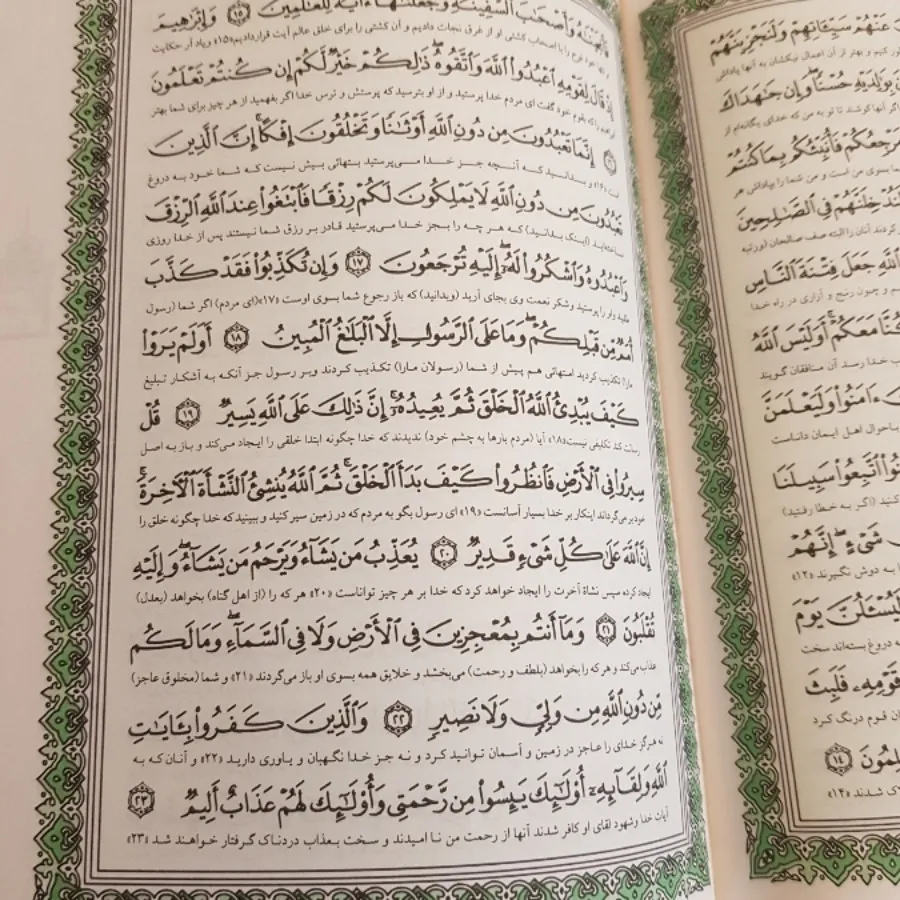 عَنْهُمْ سَيِّـَٔاتِهِمْ وَلَنَجْزِيَنَّهُمْ
کنیم و بهتر از آن اعمال نیکشان به آنها پاداش
بِوَٰلِدَيْهِ حُسْنًا وَإِن جَٰهَدَاكَ
اگر آنها کوشند تا تو به من که خدای یگانه‌ام از
مَرْجِعُكُمْ فَأُنَبِّئُكُم بِمَا كُنتُمْ
بسوی من است و من شما را پاداش هر
لَنُدْخِلَنَّهُمْ فِى ٱلصَّٰلِحِينَ
کردند آنان را البته صف صالحان
ٱللَّهِ جَعَلَ فِتْنَةَ ٱلنَّاسِ
و چون رنج و آزاری در راه خدا
كُنَّا مَعَكُمْ أَوَلَيْسَ ٱللَّهُ
خدا رسد آن منافقان گویند
ءَامَنُوا۟ وَلَيَعْلَمَنَّ
باحوال اهل ایمان داناست
ٱتَّبِعُوا۟ سَبِيلَنَا
کنید (اگر به خطا رفتید)
شَىْءٍ إِنَّهُمْ
به دوش نگیرند «۱۲»
وَلَيُسْـَٔلُنَّ يَوْمَ
دروغ بسته‌اند سخت
قَوْمِهِۦ فَلَبِثَ
قوم درنگ کرد
۱۴
شدند «۱۴»
فَأَنجَيْنَٰهُ وَأَصْحَٰبَ ٱلسَّفِينَةِ وَجَعَلْنَٰهَآ ءَايَةً لِّلْعَٰلَمِينَ ۱۵ وَإِبْرَٰهِيمَ
را با اصحاب کشتی او از غرق نجات دادیم و آن کشتی را برای خلق عالم آیت قراردادیم «۱۵» و یاد آر حکایت
إِذْ قَالَ لِقَوْمِهِ ٱعْبُدُوا۟ ٱللَّهَ وَٱتَّقُوهُ ذَٰلِكُمْ خَيْرٌ لَّكُمْ إِن كُنتُمْ تَعْلَمُونَ
ابراهیم را که بقوم خود گفت ای مردم خدا پرستید و از او بترسید که پرستش و ترس خدا اگر بفهمید از هر چیز برای شما بهتر
۱۶ إِنَّمَا تَعْبُدُونَ مِن دُونِ ٱللَّهِ أَوْثَٰنًا وَتَخْلُقُونَ إِفْكًا إِنَّ ٱلَّذِينَ
است «۱۶» و بدانید که آنچه جز خدا می‌پرستید بتهائی بیش نیست که شما خود به دروغ
تَعْبُدُونَ مِن دُونِ ٱللَّهِ لَا يَمْلِكُونَ لَكُمْ رِزْقًا فَٱبْتَغُوا۟ عِندَ ٱللَّهِ ٱلرِّزْقَ
ساخته‌اید (اینک بدانید) که هر چه را بجز خدا می‌پرستید قادر بر رزق شما نیستند پس از خدا روزی
وَٱعْبُدُوهُ وَٱشْكُرُوا۟ لَهُۥٓ إِلَيْهِ تُرْجَعُونَ ۱۷ وَإِن تُكَذِّبُوا۟ فَقَدْ كَذَّبَ
طلبید و او را پرستید و شکر نعمت وی بجای آرید (و بدانید) که باز رجوع شما بسوی اوست «۱۷» (ای مردم) اگر شما (رسول
أُمَمٌ مِّن قَبْلِكُمْ وَمَا عَلَى ٱلرَّسُولِ إِلَّا ٱلْبَلَٰغُ ٱلْمُبِينُ ۱۸ أَوَلَمْ يَرَوْا۟
ما را) تکذیب کردید امتهائی هم پیش از شما (رسولان ما را) تکذیب کردند و بر رسول جز آنکه به آشکار تبلیغ
كَيْفَ يُبْدِئُ ٱللَّهُ ٱلْخَلْقَ ثُمَّ يُعِيدُهُۥٓ إِنَّ ذَٰلِكَ عَلَى ٱللَّهِ يَسِيرٌ ۱۹ قُلْ
رسالت کند تکلیفی نیست «۱۸» آیا (مردم بارها به چشم خود) ندیدند که خدا چگونه ابتدا خلقی را ایجاد می‌کند و باز به اصل
سِيرُوا۟ فِى ٱلْأَرْضِ فَٱنظُرُوا۟ كَيْفَ بَدَأَ ٱلْخَلْقَ ثُمَّ ٱللَّهُ يُنشِئُ ٱلنَّشْأَةَ ٱلْءَاخِرَةَ
خود برمی‌گرداند اینکار بر خدا بسیار آسانست «۱۹» ای رسول بگو به مردم که در زمین سیر کنید و ببینید که خدا چگونه خلق را
إِنَّ ٱللَّهَ عَلَىٰ كُلِّ شَىْءٍ قَدِيرٌ ۲۰ يُعَذِّبُ مَن يَشَآءُ وَيَرْحَمُ مَن يَشَآءُ وَإِلَيْهِ
ایجاد کرده سپس نشاة آخرت را ایجاد خواهد کرد که خدا بر هر چیز تواناست «۲۰» هر که را (از اهل گناه) بخواهد (بعدل)
تُقْلَبُونَ ۲۱ وَمَآ أَنتُم بِمُعْجِزِينَ فِى ٱلْأَرْضِ وَلَا فِى ٱلسَّمَآءِ وَمَا لَكُم
عذاب می‌کند و هر که را بخواهد (بلطف و رحمت) می‌بخشد و خلایق همه بسوی او باز می‌گردند «۲۱» و شما (مخلوق عاجز)
مِّن دُونِ ٱللَّهِ مِن وَلِىٍّ وَلَا نَصِيرٍ ۲۲ وَٱلَّذِينَ كَفَرُوا۟ بِـَٔايَٰتِ
نه هرگز خدای را عاجز در زمین و آسمان توانید کرد و نه جز خدا نگهبان و یاوری دارید «۲۲» و آنان که به
ٱللَّهِ وَلِقَآئِهِۦٓ أُو۟لَٰٓئِكَ يَئِسُوا۟ مِن رَّحْمَتِى وَأُو۟لَٰٓئِكَ لَهُمْ عَذَابٌ أَلِيمٌ ۲۳
آیات خدا و شهود لقای او کافر شدند آنها از رحمت من نا امیدند و سخت بعذاب دردناک گرفتار خواهند شد «۲۳»